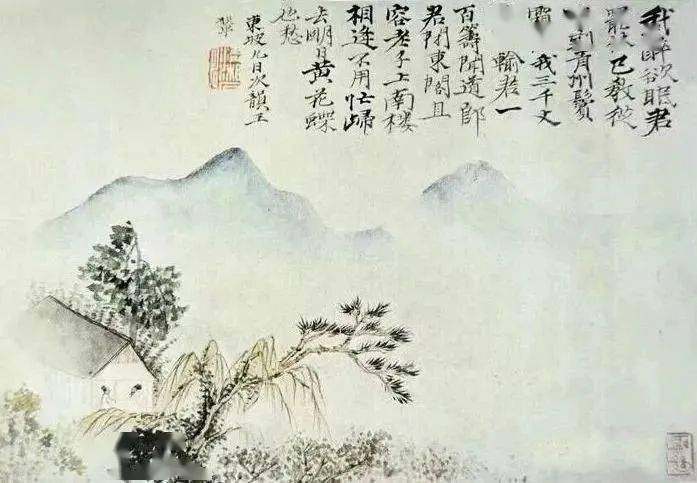 眠君
已教從
到青州鬢
霜我三千丈
輸君一
百籌聞道郎
君閉東閣且
容老子上南楼
相逢不用忙歸
去明日黃花蝶
也愁
東坡九日次韻王
鞏